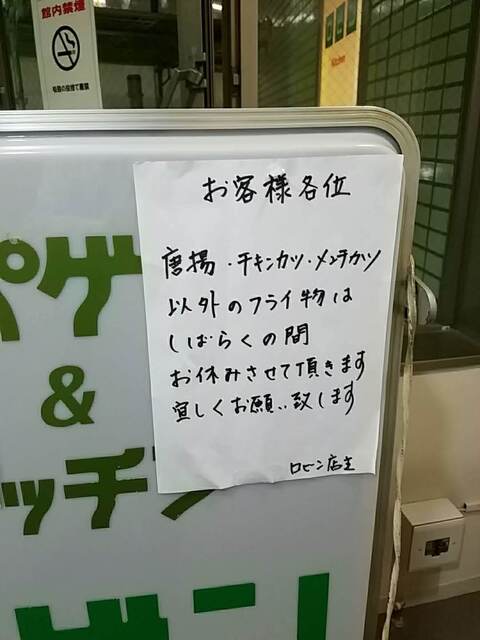 館内禁煙
Kitchen
お客様各位
唐揚・チキンカツ・メンチカツ
以外のフライ物は
しばらくの間
お休みさせて頂きます
宜しくお願い致します
ロビン店主
パゲ
&
ッチン